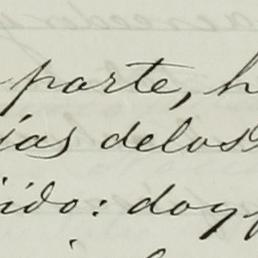 parte, h
ías delos
ido: doy